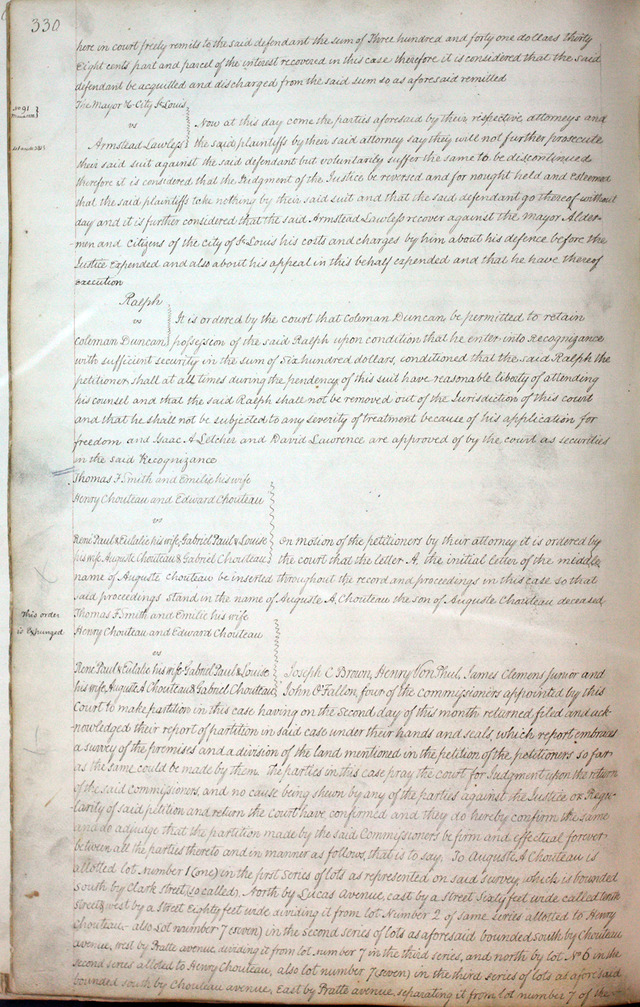 330
here in court freely remits to the said defendant the sum of Three hundred and forty one dollars thirty
Eight cents part and parcel of the interest recovered in this case therefore it is considered that the said
defendant be acquitted and discharged from the said sum so as aforesaid remitted
The Mayor &c City St Louis
vs Now at this day come the parties aforesaid by their respective attorneys and
Armstead Lawless the said plaintiffs by their said attorney say they will not further prosecute
their said suit against the said defendant but voluntarily suffer the same to be discontinued
therefore it is considered that the Judgment of the Justice be reversed and for nought held and esteemed
that the said plaintiffs take nothing by their said suit and that the said defendant go thereof without
day and it is further considered that the said Armstead Lawless recover against the Mayor Alder-
men and citizens of the city of St Louis his costs and charges by him about his defence before the
Justice Expended and also about his appeal in this behalf expended and that he have thereof
execution
Ralph
vs It is ordered by the court that Coleman Duncan be permitted to retain
Coleman Duncan possession of the said Ralph upon condition that he enter into Recognizance
with sufficient security in the sum of six hundred dollars, conditioned that the said Ralph the
petitioner shall at all times during the pendency of this suit have reasonable liberty of attending
his counsel and that the said Ralph shall not be removed out of the Jurisdection of this court
and that he shall not be subjected to any severity of treatment because of his application for
freedom and Isaac A Letcher and David Lawrence are approved of by the court as securities
in the said Recognizance
Thomas F Smith and Emilie his wife
Henry Chouteau and Edward Chouteau
vs
René Paul & Eulalie his wife, Gabriel Paul & Louise On motion of the petitioners by their attorney it is ordered by
his wife, Auguste Chouteau & Gabriel Chouteau the court that the letter A. the initial letter of the middle
name of Auguste Chouteau be inserted throughout the record and proceedings in this case so that
said proceedings stand in the name of Auguste A, Chouteau the son of Auguste Chouteau deceased
This order
is Expunged
Thomas F Smith and Emilie his wife
Henry Chouteau and Edward Chouteau
vs
René Paul & Eulalie his wife Gabriel Paul & Louise Joseph C Brown, Henry Von Phul, James Clemens Junior and
his wife, Auguste A Chouteau & Gabriel Chouteau John O'Fallon, four of the commissioners appointed by this
Court to make partition in this case having on the second day of this month returned filed and ack-
nowledged their report of partition in said case under their hands and seals, which report embraces
a survey of the premises and a division of the land mentioned in the petition of the petitioners so far
as the same could be made by them. The parties in this case pray the court for Judgment upon the return
of the said Commissioners, and no cause being shewn by any of the parties against the Justice or Regu-
larity of said petition and return the Court have confirmed and they do hereby confirm the same
and do adjudge that the partition made by the said Commissioners be firm and effectual forever
between all the parties thereto and in manner as follows, that is to say. To Auguste A Chouteau is
allotted lot number 1 (one) in the first series of lots as represented on said survey which is bounded
South by Clark Street (so called), North by Lucas Avenue, east by a street Sixty feet wide called tenth
Street & west by a street Eighty feet wide dividing it from lot Number 2 of same series allotted to Henry
Chouteau - also lot number 7 (seven) in the second series of lots as aforesaid bounded south by Chouteau
avenue, west by Pratte avenue, dividing it from lot number 7 in the third series, and north by lot No 6 in the
second series alloted to Henry Chouteau, also lot number 7 (seven) in the third series of lots as aforesaid
bounded south by Chouteau avenue, East by Pratte avenue, separating it from lot number 7 of the